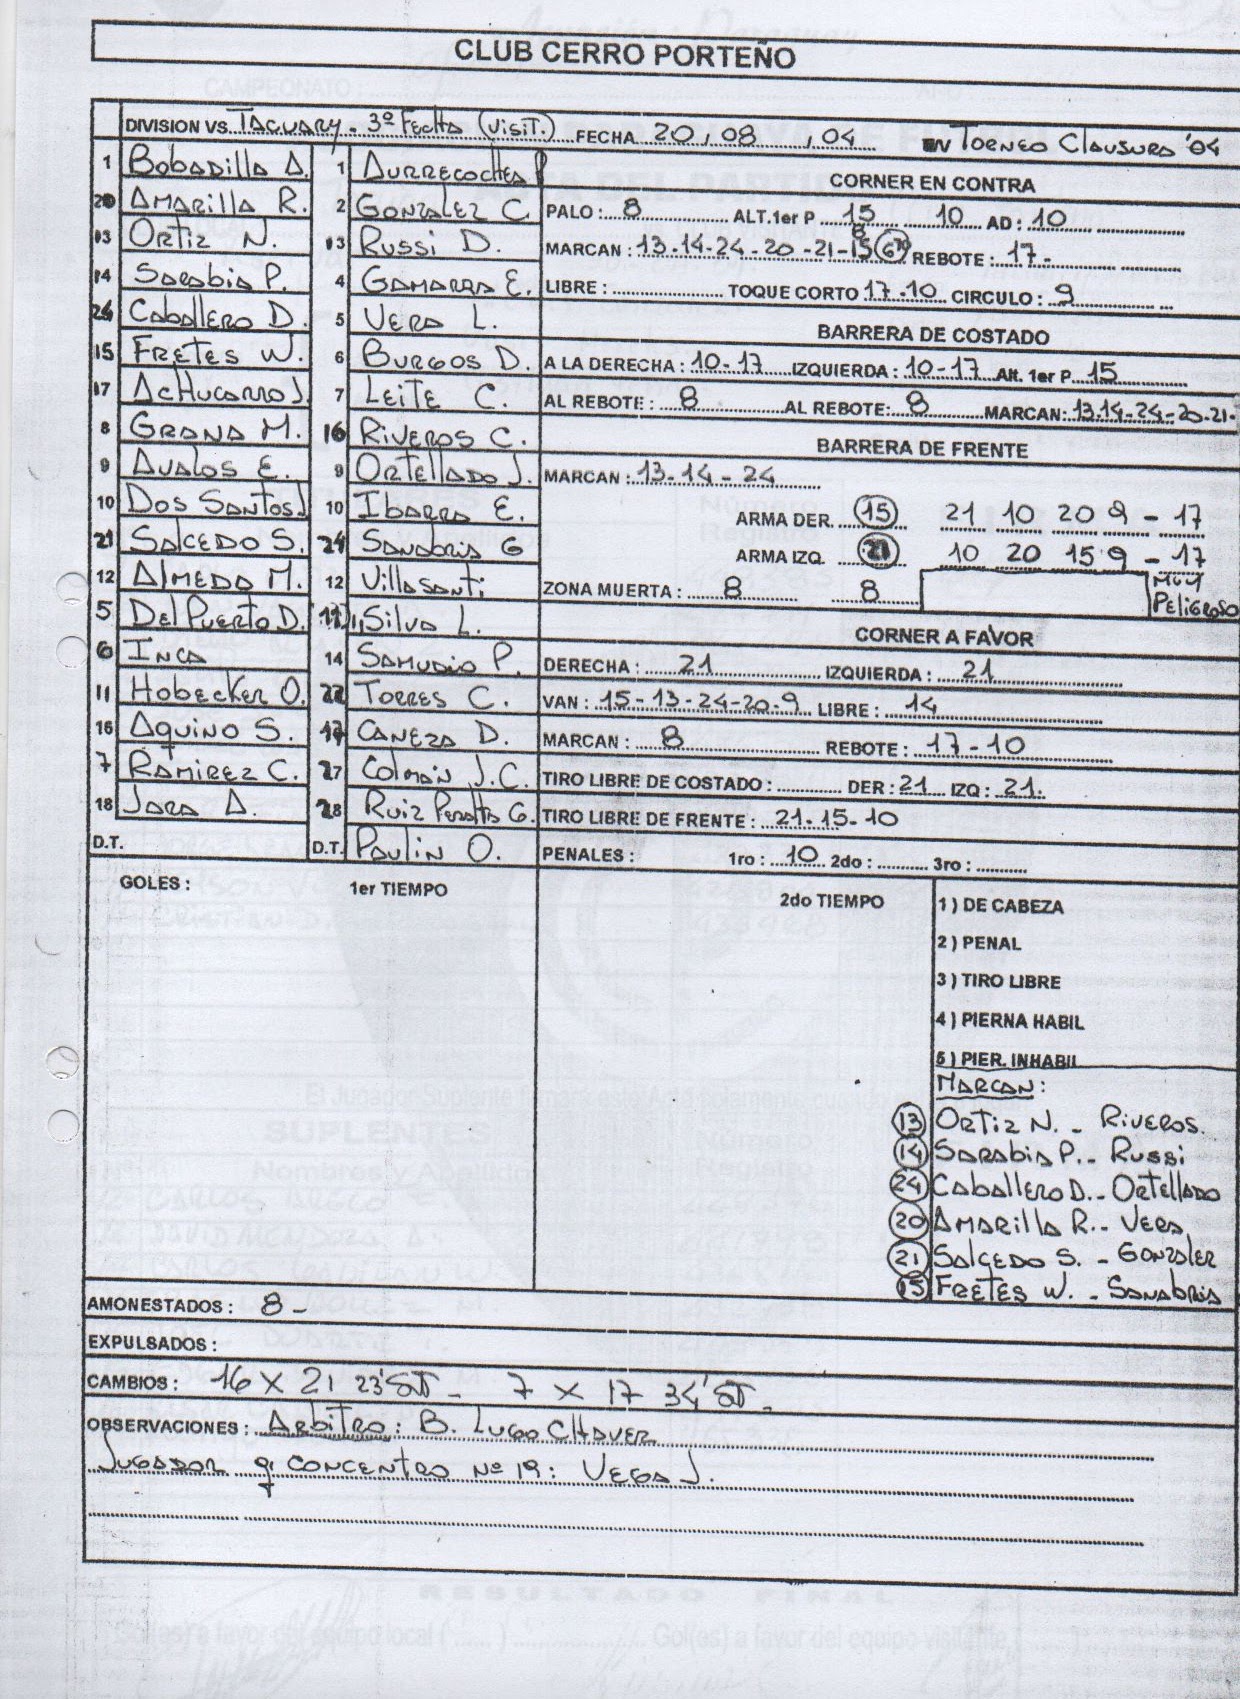 CLUB CERRO PORTEÑO
DIVISION VS. TACUARY - 3ª FECHA (VISIT.) FECHA 20, 08, 04 TORNEO CLAUSURA '04
1 BOBADILLA A. 1 AURRECOCHEA P
20 AMARILLA R. 2 GONZALEZ C.
13 ORTIZ N. 13 RUSSI D.
14 SARABIA P. 4 GAMARRA E.
24 CABALLERO D. 5 VERA L.
15 FRETES W. 6 BURGOS D.
17 ACHUCARRO J. 7 LEITE C.
8 GRANA M. 16 RIVEROS C.
9 AVALOS E. 9 ORTELLADO J.
10 DOS SANTOS J 10 IBARRA E.
21 SALCEDO S. SANABRIA G
12 ALMEDA M. 12 VILLASANTI
5 DEL PUERTO D. 11 SILVA L.
6 INCA 14 SAMUDIO P.
11 HOBECKER O. 22 TORRES C.
16 AQUINO S. CANEZA D.
7 RAMIREZ C. 27 COLMÁN J.C.
18 JARA A. 28 RUIZ PERALTA G.
D.T. D.T. PAULIN O.
CORNER EN CONTRA
PALO : 8 ALT. 1er P. 15 10 AD : 10
MARCAN : 13-14-24-20-21-15 8 REBOTE : 17-
LIBRE : TOQUE CORTO 17.10 CIRCULO : 9
BARRERA DE COSTADO
A LA DERECHA : 10-17 IZQUIERDA : 10-17 Alt. 1er P. 15
AL REBOTE : 8 AL REBOTE : 8 MARCAN: 13.14-24-20-21-
BARRERA DE FRENTE
MARCAN : 13-14-24
ARMA DER. 15 21 10 20 9 - 17
ARMA IZQ. 21 10 20 15 9 - 17
ZONA MUERTA : 8 8 MUY
PELIGROSO
CORNER A FAVOR
DERECHA : 21 IZQUIERDA : 21
VAN : 15-13-24-20-9 LIBRE : 14
MARCAN : 8 REBOTE : 17-10
TIRO LIBRE DE COSTADO : DER : 21 IZQ : 21.
TIRO LIBRE DE FRENTE : 21-15-10
PENALES : 1ro : 10 2do : 3ro :
GOLES : 1er TIEMPO 2do TIEMPO
1 ) DE CABEZA
2 ) PENAL
3 ) TIRO LIBRE
4 ) PIERNA HABIL
5 ) PIER. INHABIL
MARCAN:
13 ORTIZ N. - RIVEROS.
14 SARABIA P. - RUSSI
24 CABALLERO D. - ORTELLADO
20 AMARILLA R. - VERA
21 SALCEDO S. - GONZALEZ
15 FRETES W. - SANABRIA
AMONESTADOS : 8 -
EXPULSADOS :
CAMBIOS : 16 X 21 23' ST - 7 X 17 34' ST.
OBSERVACIONES : ARBITRO: B. LUGO CHAVEZ
JUGADOR q' CONCENTRO Nº 19: VEGA J.